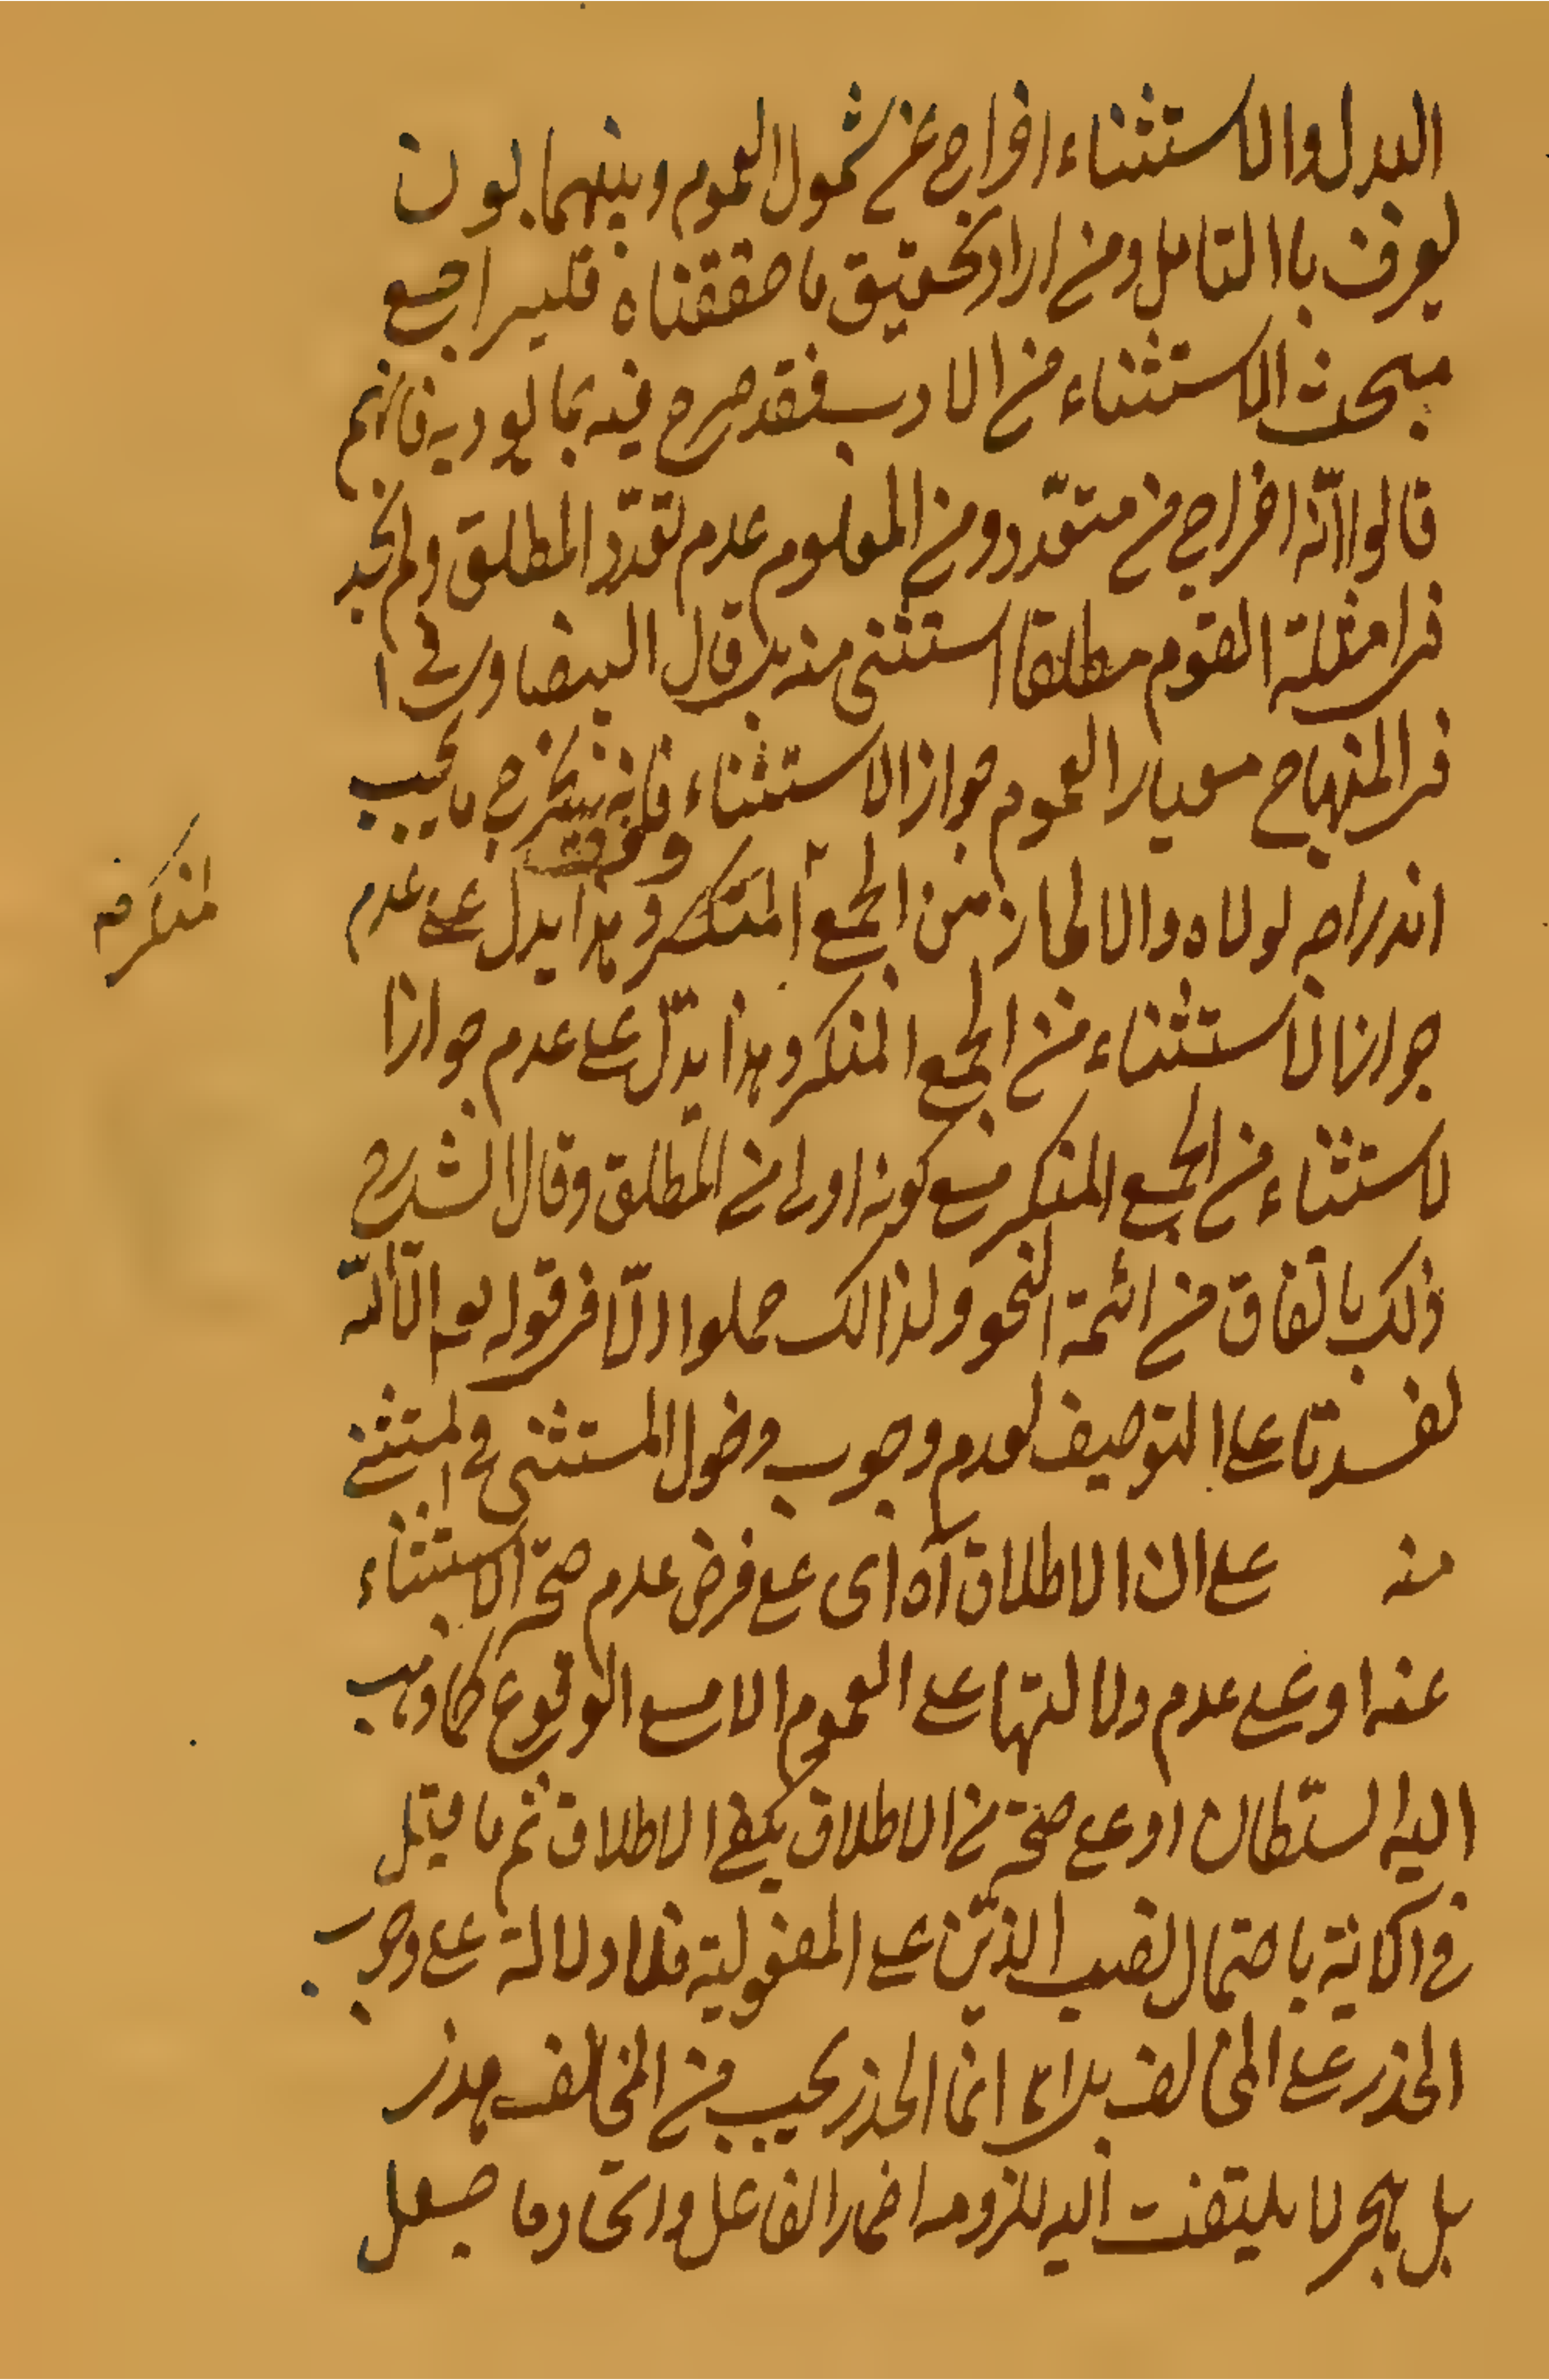 البدل والاستثناء اخراج عن شمول العموم وبينهما بون
يعرف باالتامل ومن اراد تحقيق ما حققناه فليراجع
مبحث الاستثناء من الادب فقد صرح فيه بما يوديه فانهم
قالوا انّه اخراج من متعدّد ومن المعلوم عدم تعدّد المطلق ولم نجد
فى امثلة القوم مطلقا استثنى منه بل قال البيضاوى فى ا
فى المنهاج معيار العموم جواز الاستثناء فانه يخرج ما يجب
اندراجه لولاه والا لجاز من الجمع المنكر وهذا يدل على عدم
المنكر صح
جواز الاستثناء من الجمع المنكر وهذا يدلّ على عدم جواز ا
لاستثناء من الجمع المنكر مع كونه اولى من المطلق وقال الشرح
ذلك باتفاق من ائمة النحو ولذالك حملوا الّا فى قوله تع الّا اللّه
لفسدتا على التوصيف لعدم وجوب دخول المستثنى فى المستثنى
منه على ان الاطلاق آه اى على فرض عدم صحّة الاستثناء
عنه او على عدم دلالتها على العموم الا مع الوقوع كما ذهب
اليه السّلطان او على صحّة من الاطلاق يكفى الاطلاق ثم ما قيل
فى الآية باحتمال نصب الذين على المفعولية فلا دلالة على وجوب
الحذر على المخالف بل انما الحذر يجب من المخالف هدر
بل هجر لا يلتفت اليه للزومه اضمار الفاعل واتحاد ما جعل